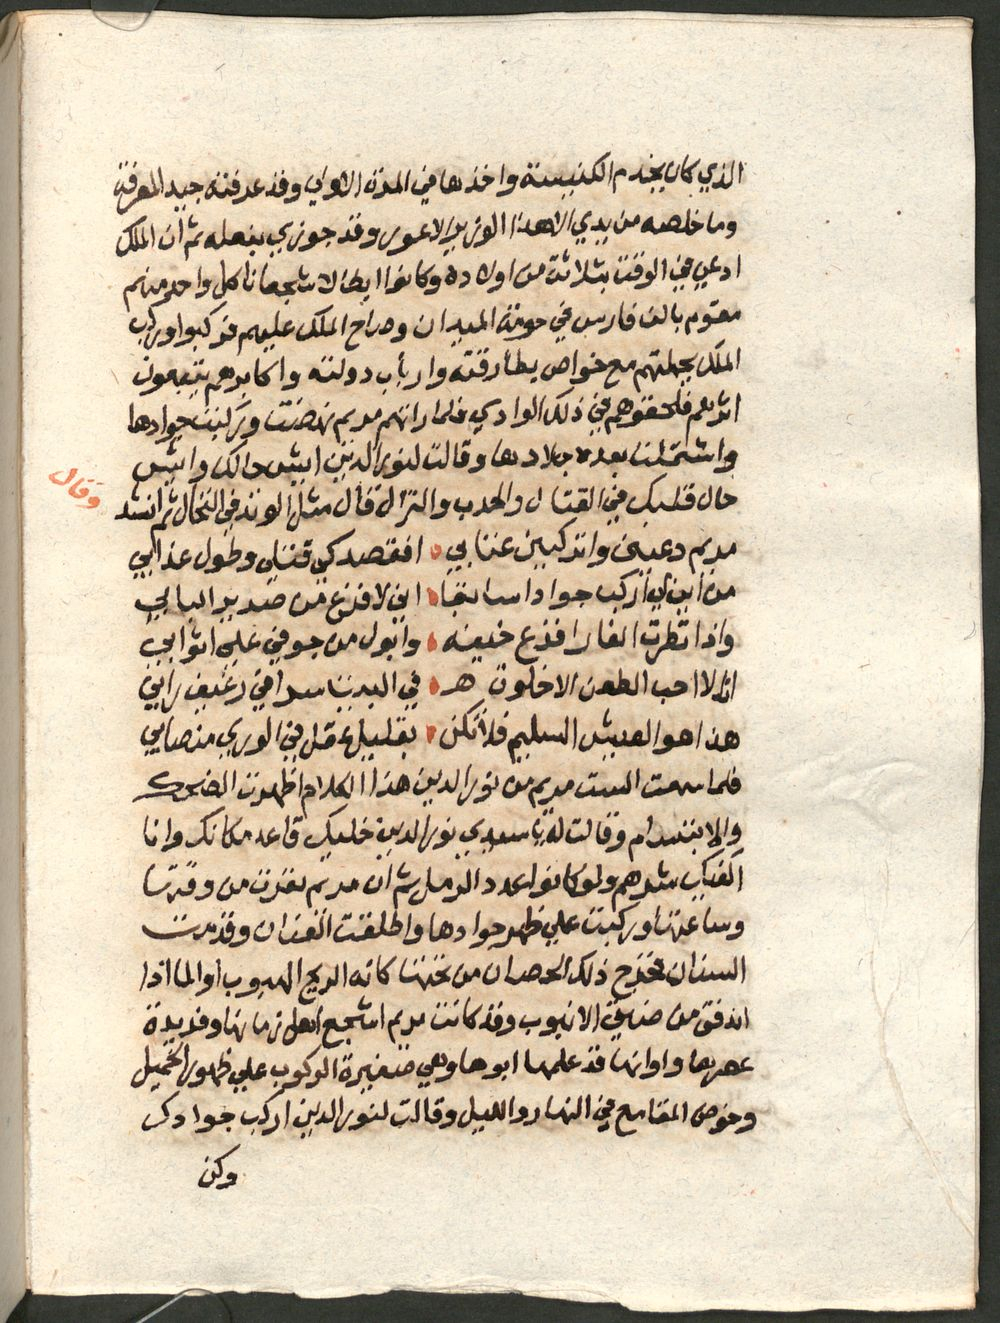 الذي كان يخدم الكنيسنة واخذها في المرة الاولي وقد عرفته جيد المعرفة
وما خلصه من يدي الا هذا الوزير الاعور وقد جوزي بفعله ثم ان الملك
ادعي في الوقت بثلاثة من اولاده وكانوا ابطالا شجعانا كل واحد منهم
مقوم بالف فارس في حومة الميدان وصاح الملك عليهم فركبوا وركب
الملك بجملتهم مع خواص بطارقته وارباب دولته واكابرهم يتبعون
اثرهم فلحقوهم في ذلك الوادي فلما راتهم مريم نهضت وركبت جوادها
واشتملت بعدة جلادها وقالت لنور الدين ايش حالك وايش
حال قلبك في القتال والحرب والنزال قال مثل الوتد في النخال ثم انشد
وقال
مريم دعيني واتركيني عتابي افتقصدكي قتلي وطول عذابي
من اين لي اركب جوادا سابقا اني لافزع من صرير البابي
واذا نظرت الفار افزع خيفه وابول من خوفي علي اثوابي
انا لا احب الطعن الا خلوة هـ في البيت سدا في رغيف رابي
هذا هو العيش السليم فلا تكن بقليل عقل في الوري متصابي
فلما سمعت الست مريم من نور الدين هذا الكلام اظهرت الضحك
والابتسام وقالت له يا سيدي نور الدين خليك قاعد مكانك وانا
اكفيك شرهم ولو كانوا عدد الرمل ثم ان مريم نفرت من وقتها
وساعتها وركبت علي ظهر جوادها واطلقت العنان وقدمت
السنان فخرج ذلك الحصان من تحتها كانه الريح الهبوب او الما اذا
اندفق من ضيق الانبوب وقد كانت مريم اشجع اهل زمانها وفريدة
عصرها واوانها قد علمها ابوها وهي صغيرة الركوب علي ظهور الخيل
وخوض المقامع في النهار والليل وقالت لنور الدين اركب جوادك
وكن